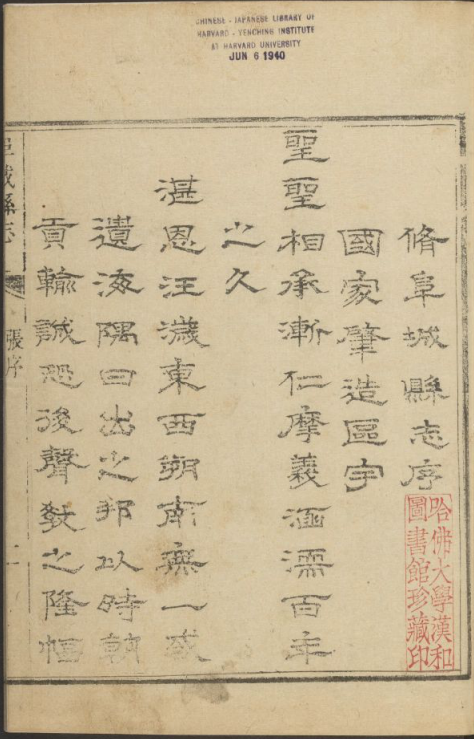 CHINESE - JAPANESE LIBRARY OF
HARVARD - YENCHING INSTITUTE
AT HARVARD UNIVERSITY
JUN 6 1940
脩阜城縣志序
國家肇造區宇
聖聖相承漸仁摩義涵濡百年
之久
湛恩汪濊東西朔南無一或
遺海隅日出之邦以時朝
貢輸誠恐後聲教之隆幅
阜城縣志
張序
一
哈佛大學漢和
圖書館珍藏印